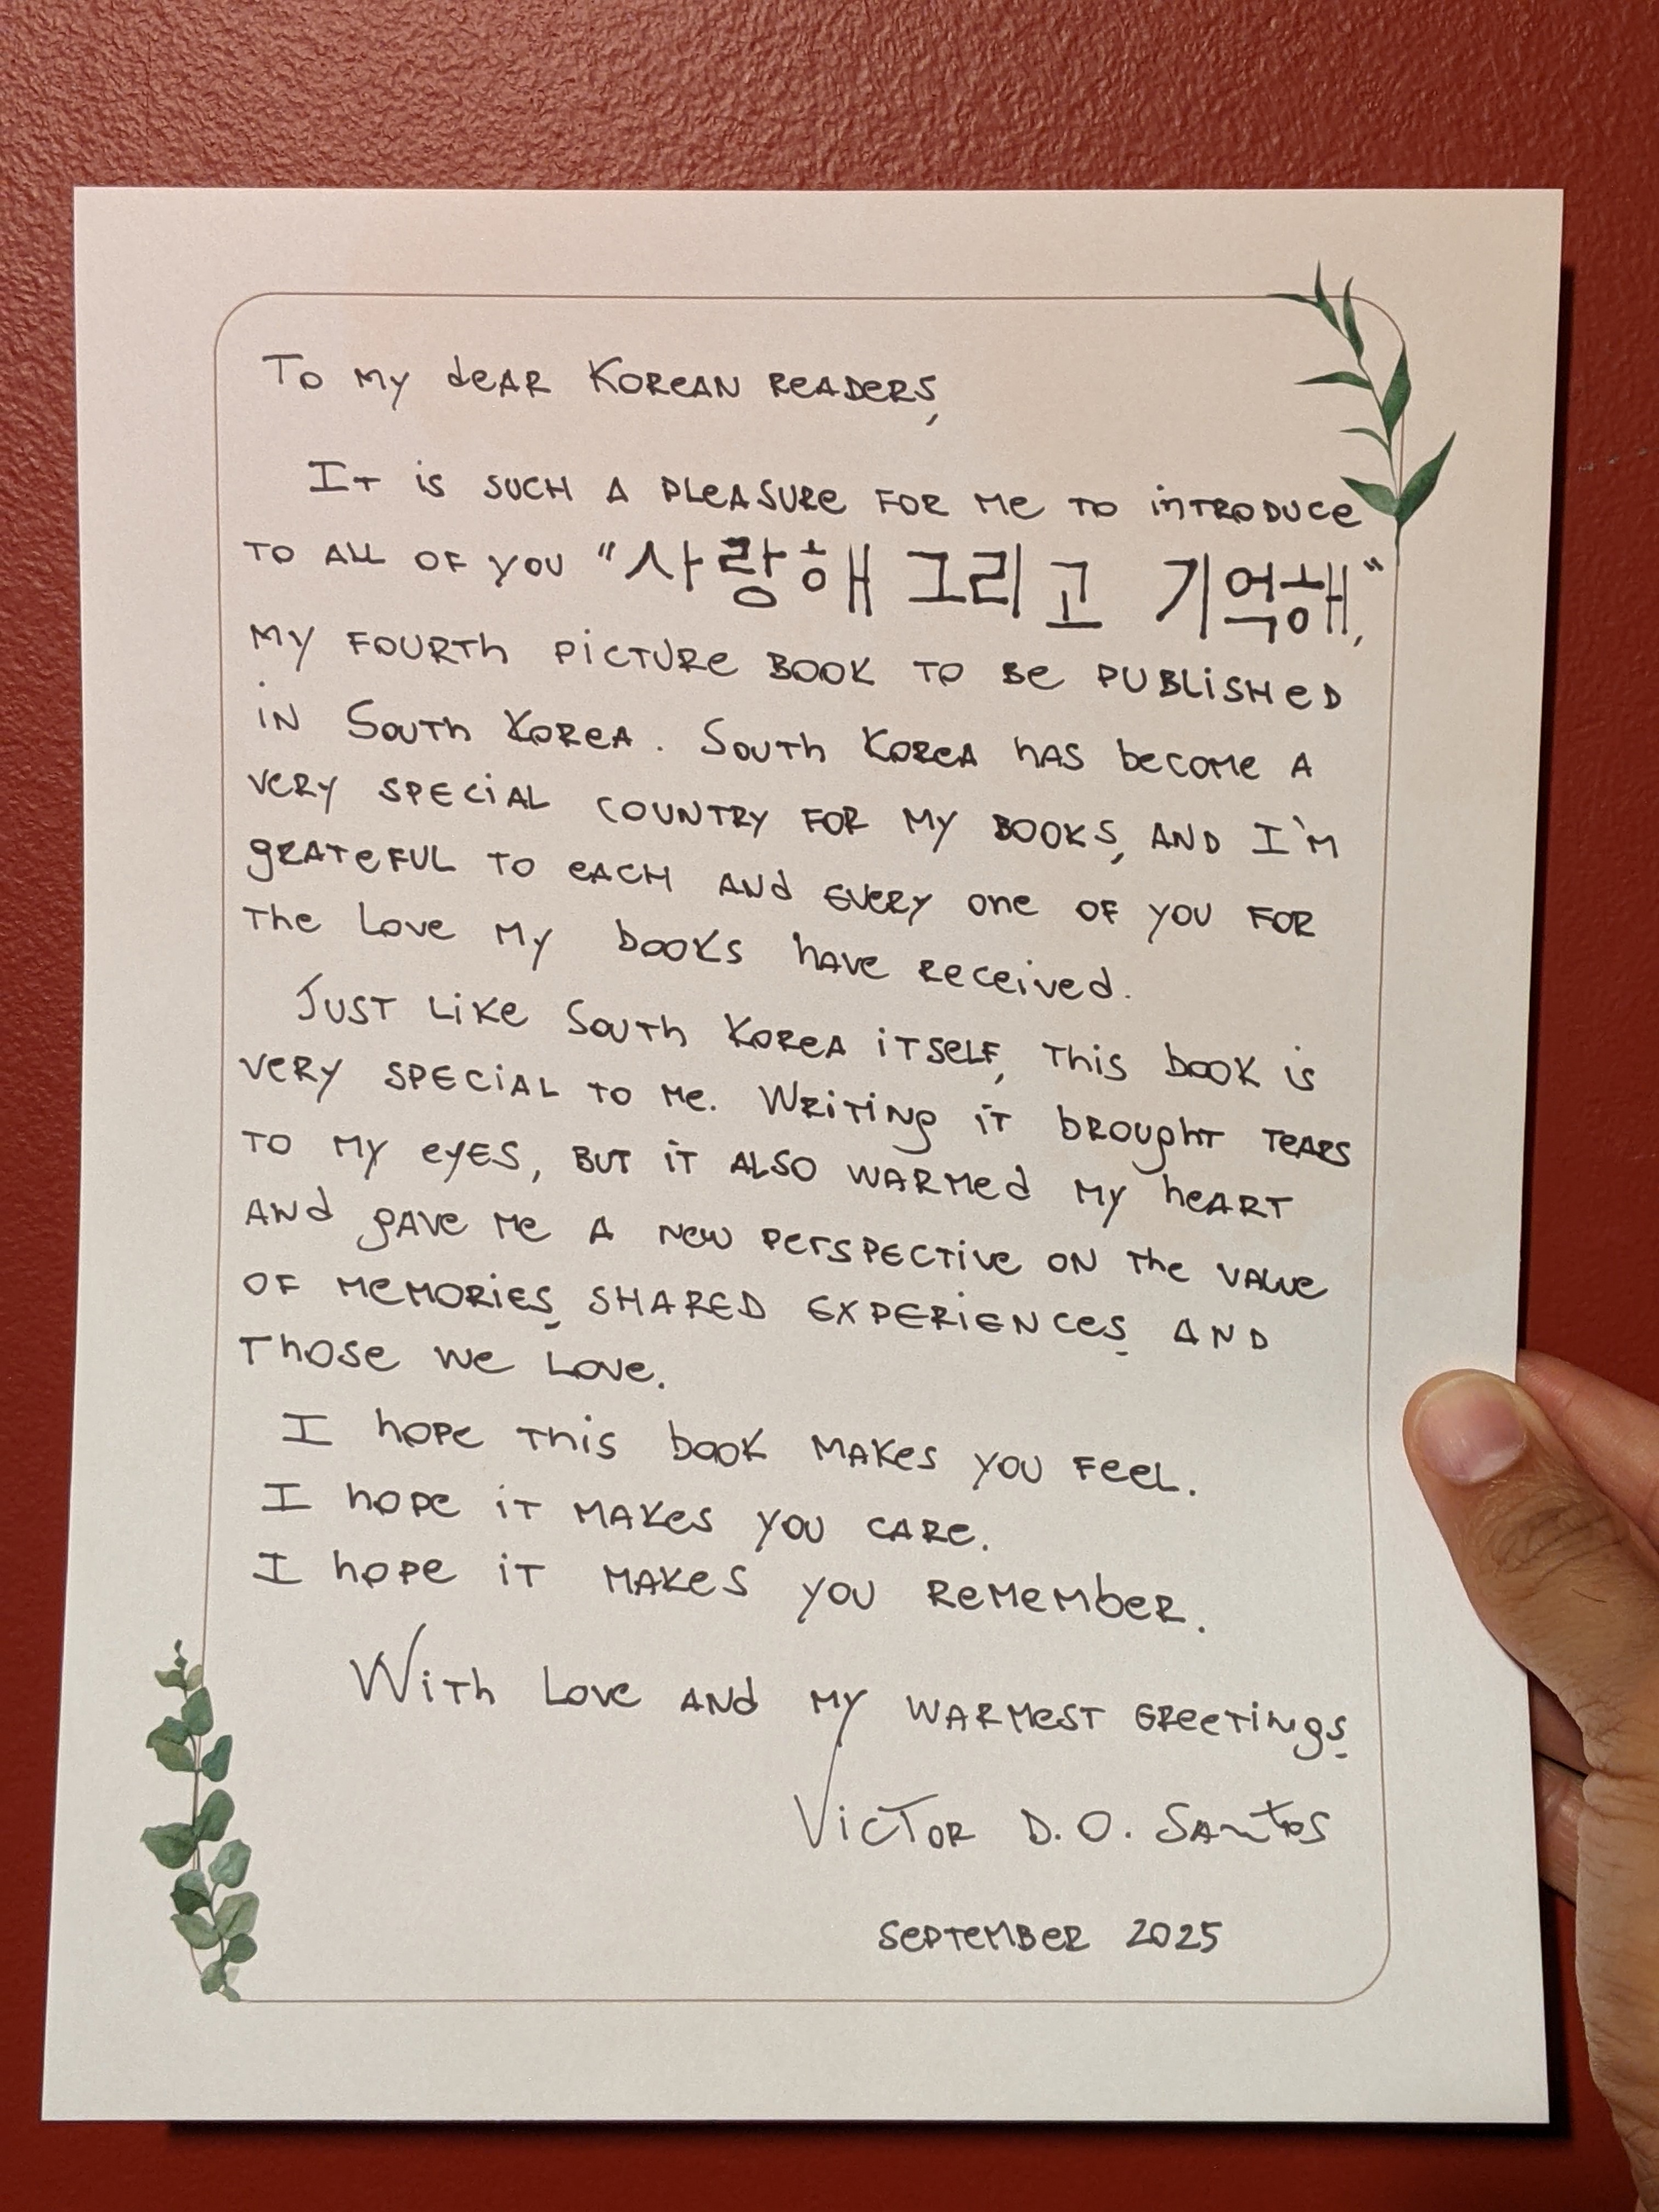 To my dear Korean readers,
It is such a pleasure for me to introduce
to all of you "사랑해 그리고 기억해,"
my fourth picture book to be published
in South Korea. South Korea has become a
very special country for my books, and I'm
grateful to each and every one of you for
the love my books have received.
Just like South Korea itself, this book is
very special to me. Writing it brought tears
to my eyes, but it also warmed my heart
and gave me a new perspective on the value
of memories, shared experiences, and
those we love.
I hope this book makes you feel.
I hope it makes you care.
I hope it makes you remember.
With love and my warmest greetings,
Victor D.O. Santos
September 2025